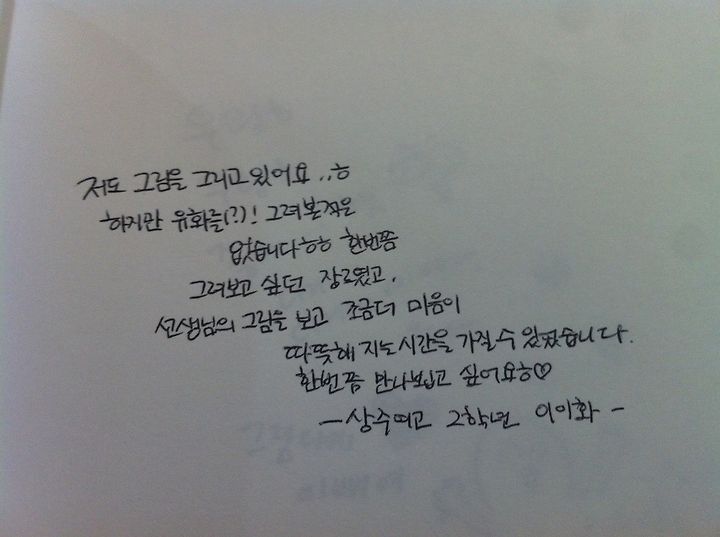 저도 그림을 그리고 있어요..ㅎ
하지만 유화를(?)! 그려본적은
없습니다ㅎㅎ 한번쯤
그려보고 싶던 장르였고,
선생님의 그림을 보고 조금더 마음이
따뜻해지는시간을 가질수 있었습니다.
한번쯤 만나뵙고 싶어요ㅎ♡
-상수여고 2학년 이이화-